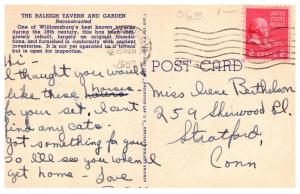 THE RALEIGH TAVERN AND GARDEN
Reconstructed
One of Williamsburg's best known taverns
during the 18th century, this has been com-
pletely rebuilt, largely on original founda-
tions, and furnished in conformity with ancient
inventories. It is not yet operated as a tavern
but is open for inspection.
POST-CARD
Hi-
I thought you would
like these houses
for your set. I can't
find any cats.
Got something for you
so I'll see you when I
get home - Love
Miss Irene Berthelson
259 Sherwood Pl.
Stratford,
Conn
2 CENTS 2